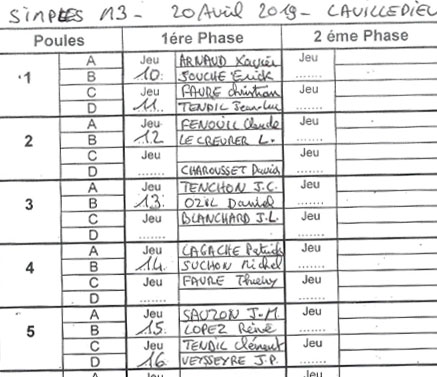 SIMPLES M3 - 20 Avril 2019 - LAVILLEDIEU
Poules 1ére Phase 2 éme Phase
1 A Jeu ARNAUD Xavier Jeu
B 10 SOUCHE Erick .......
C Jeu FAURE Christian Jeu
D 11 TENDIL Jean-Luc .......
2 A Jeu FENOUIL Claude Jeu
B 12 LE CREURER L. .......
C Jeu Jeu
D ....... CHAROUSSET David .......
3 A Jeu TENCHON J.C. Jeu
B 13 OZIL Daniel .......
C Jeu BLANCHARD J.L. Jeu
D ....... .......
4 A Jeu LAGACHE Patrick Jeu
B 14 SUCHON Michel .......
C Jeu FAURE Thierry Jeu
D ....... .......
5 A Jeu SAUZON J-M. Jeu
B 15 LOPEZ Réné .......
C Jeu TENDIL Clément Jeu
D 16 VEYSSEYRE J.P. .......
A Jeu Jeu